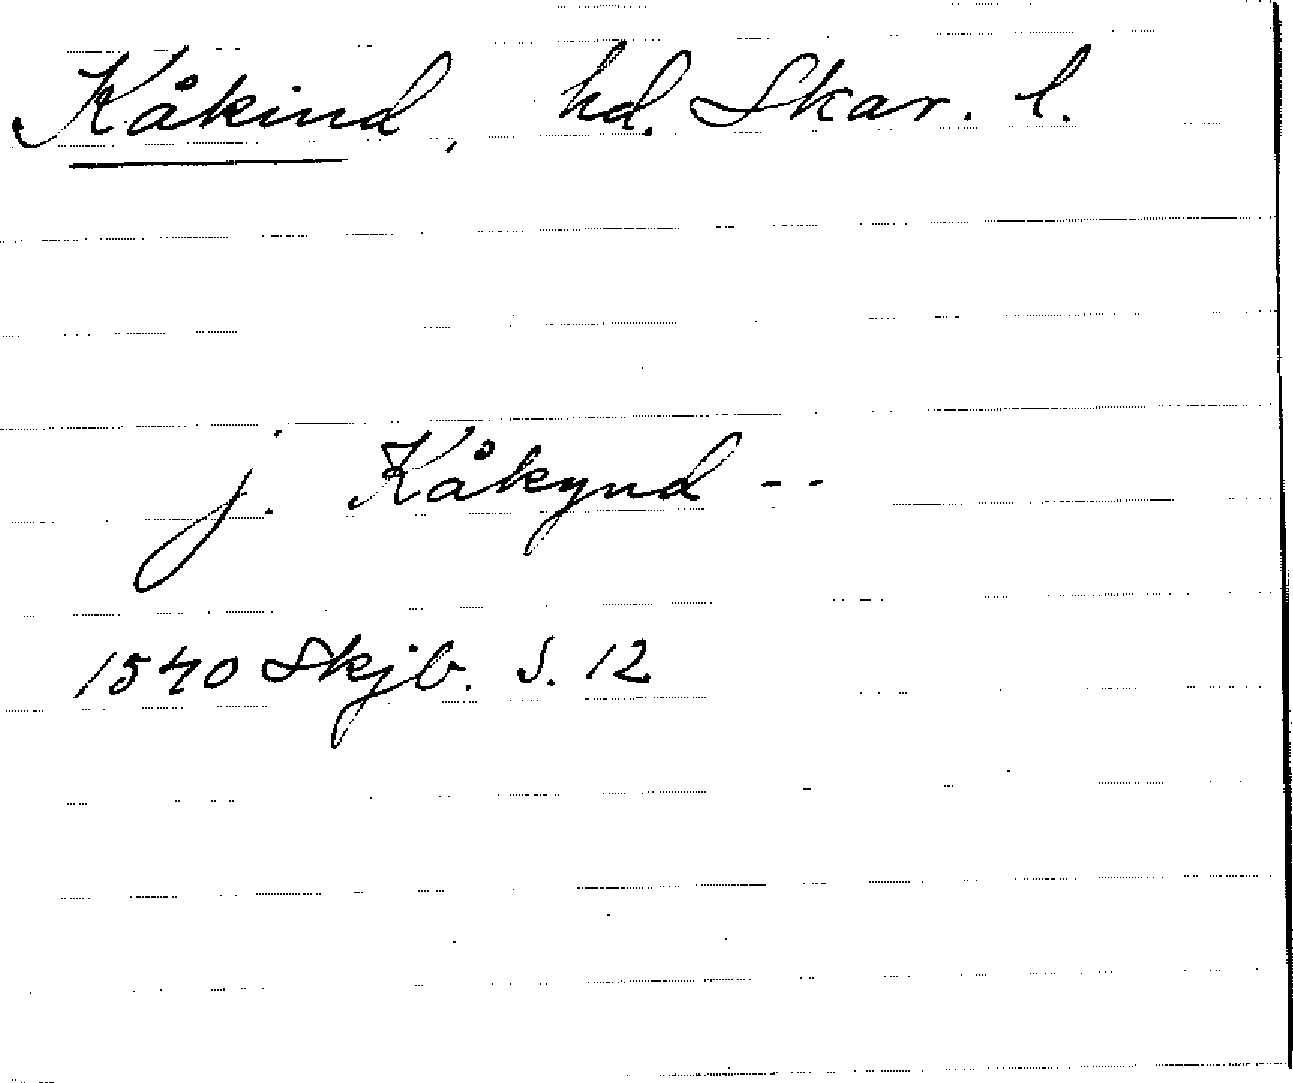 Kåkind, hd. Skar. l.
j. Kåkynd --
1540 Skjb. S. 12